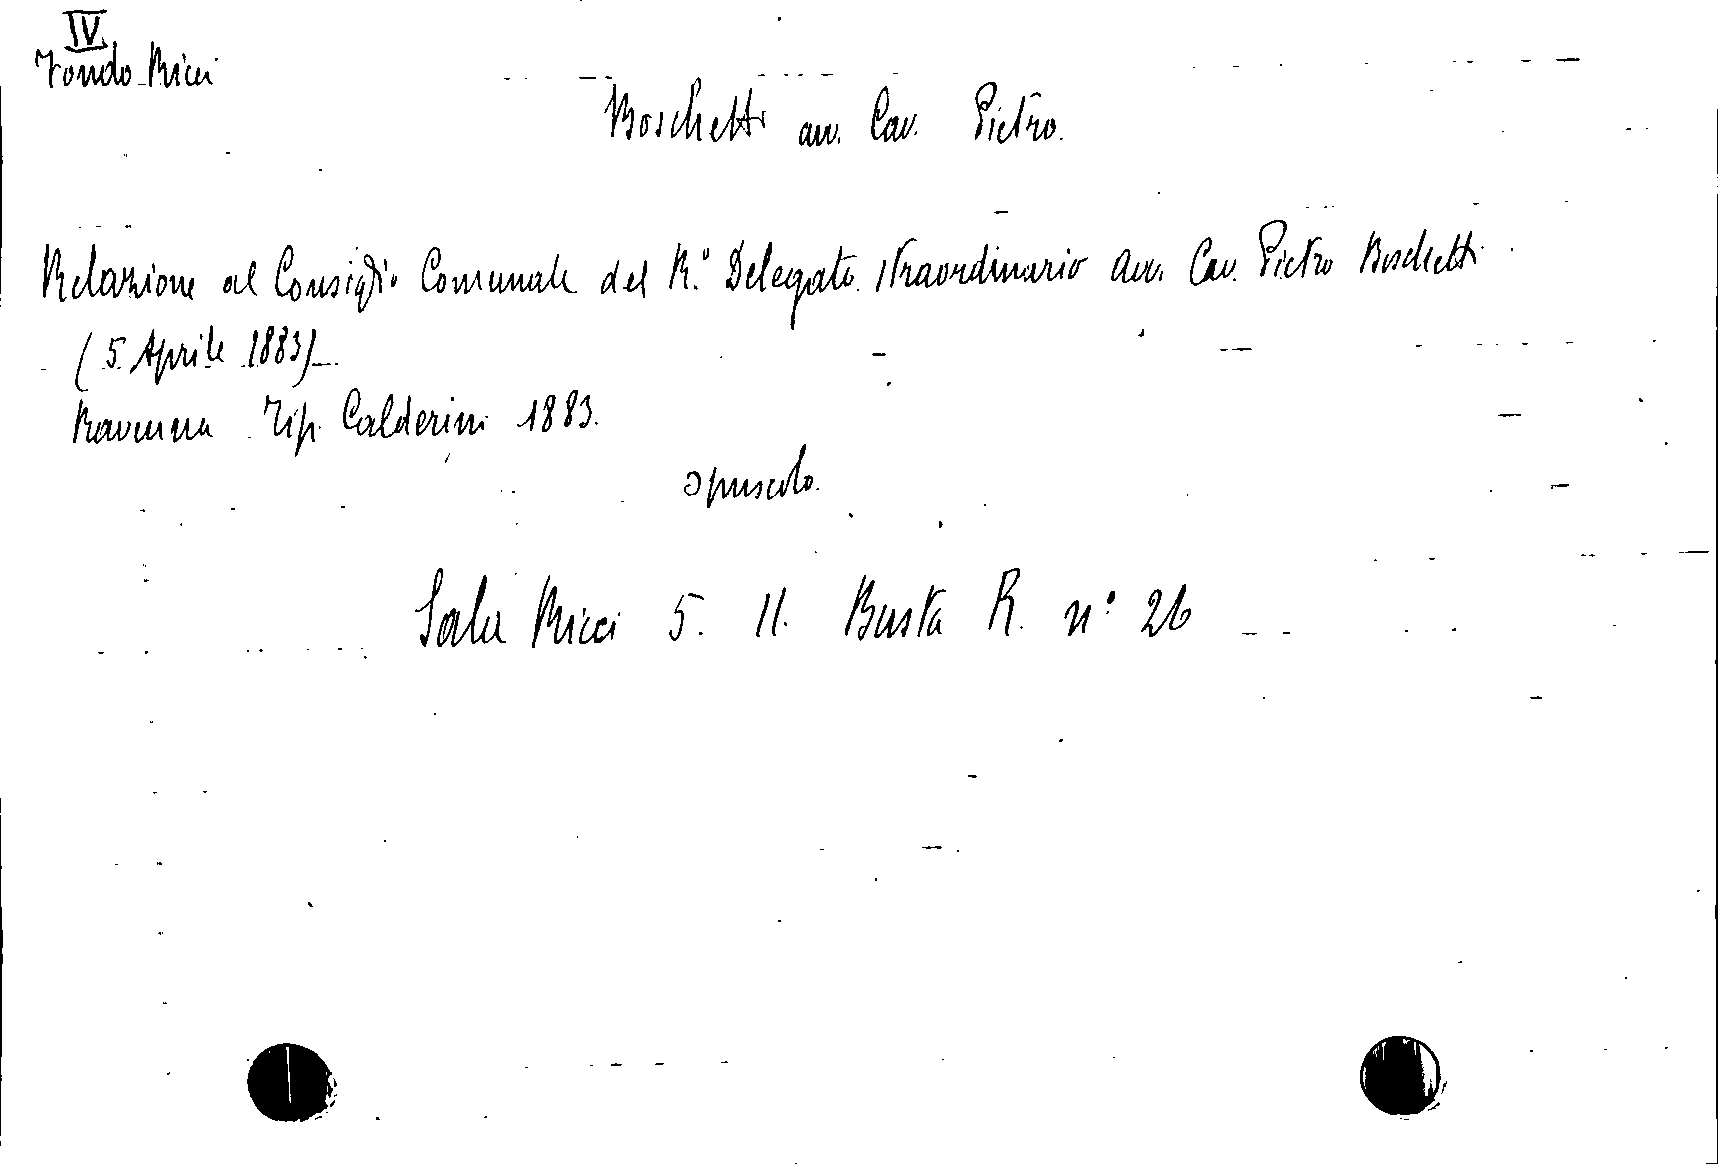 IV
Fondo Ricci
Boschetti avv. Cav. Pietro.
Relazione al Consiglio Comunale del R.° Delegato straordinario Avv. Cav. Pietro Boschetti
(5 Aprile 1883)
Ravenna Tip. Calderini 1883.
opuscolo.
Sala Ricci 5. 11. Busta R. n° 26